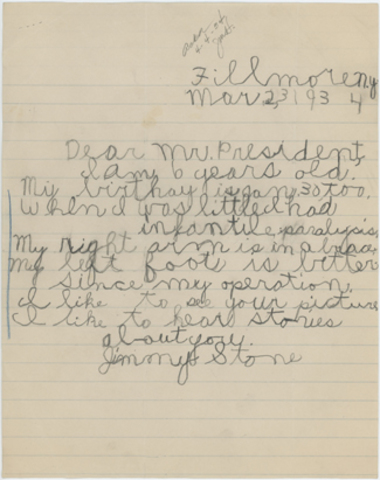 Fillmore N.Y
Mar. 23 193 4
Dear Mr. President,
I am 6 years old.
My birthay is Jan. 30 too.
When I was little I had
infantile paralysis.
My right arm is in a brace.
My left foot is better
since my operation.
I like to see your picture
I like to hear stories
about you.
Jimmy Stone